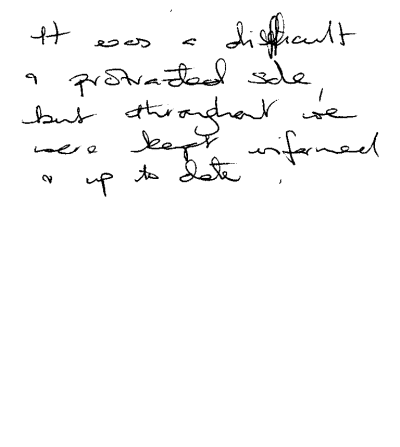 It was a difficult
& protracted sale,
but throughout we
were kept informed
& up to date.